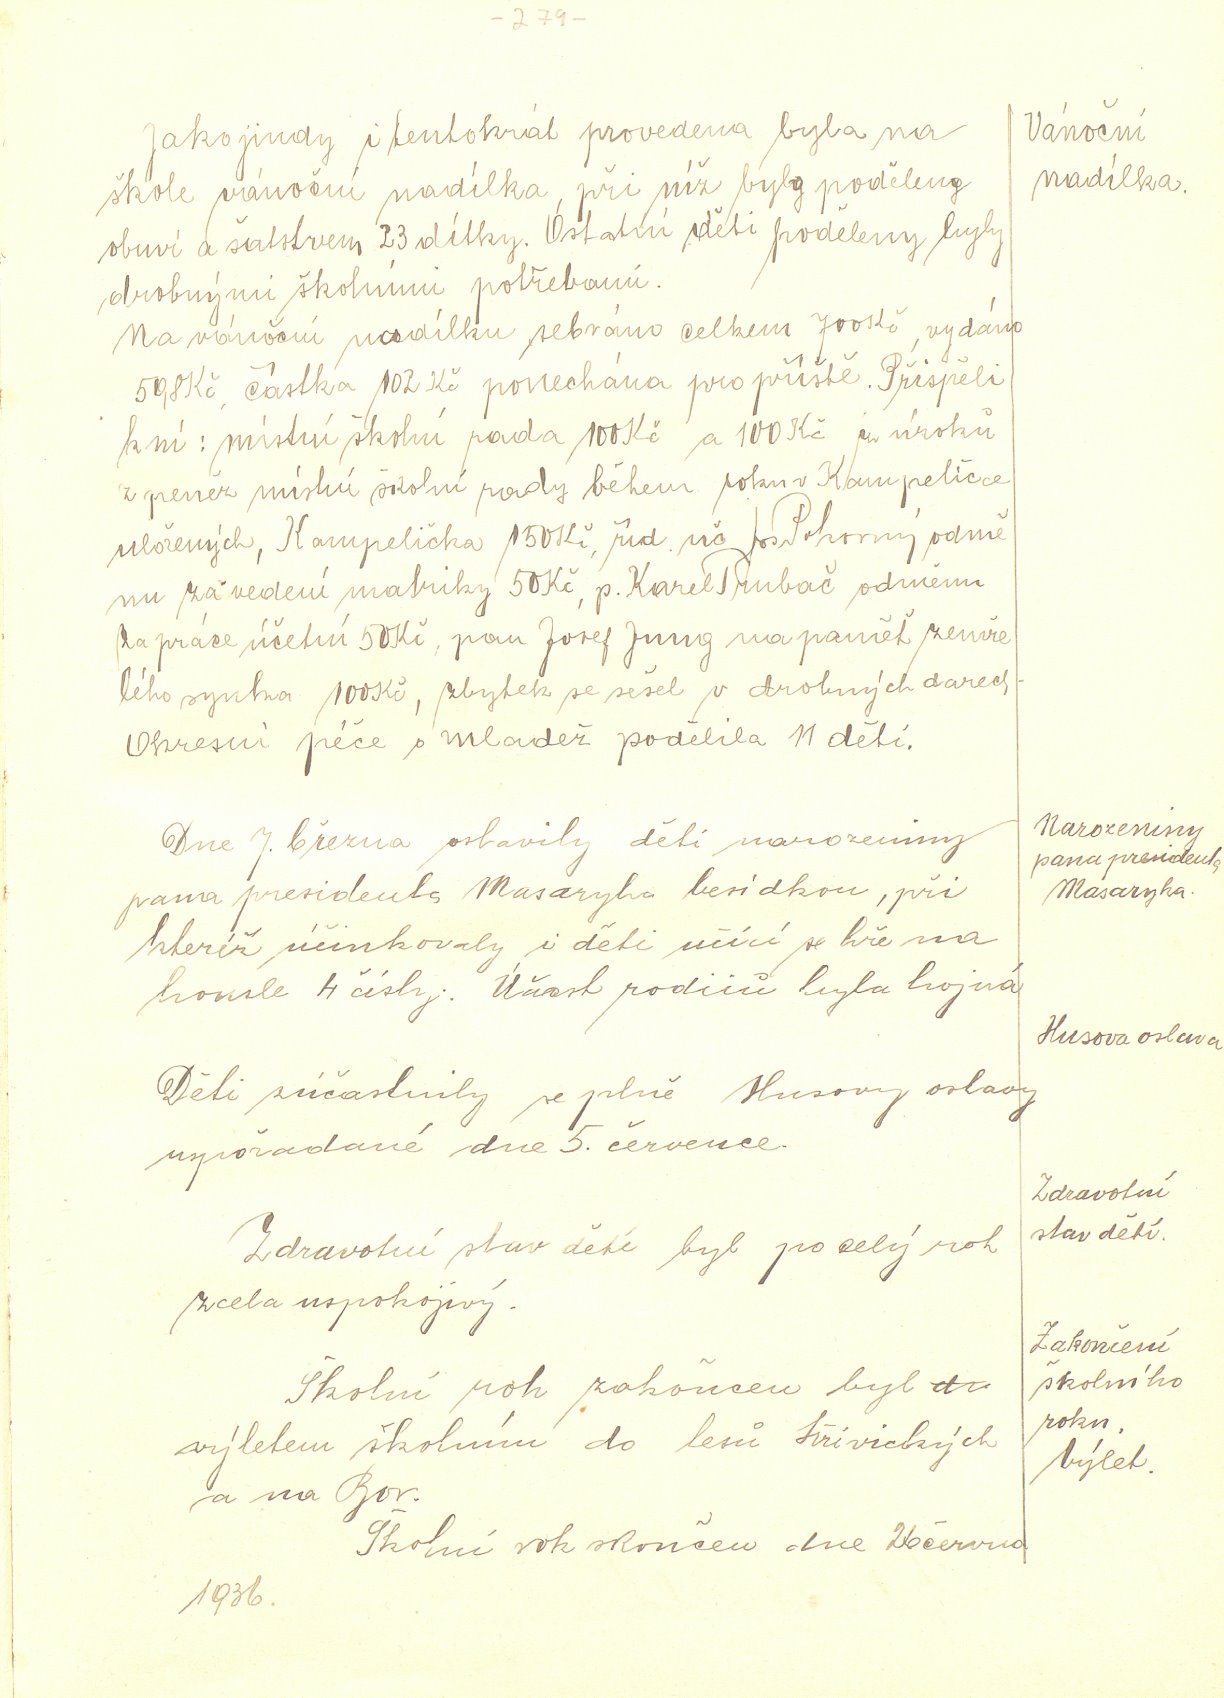 - 279 -
Jako jindy i tentokrát provedena byla na
škole vánoční nadílka, při níž byly poděleny
obuví a šatstvem 23 dítky. Ostatní děti poděleny byly
drobnými školními potřebami.
Na vánoční nadílku sebráno celkem 700 Kč, vydáno
598 Kč, částka 102 Kč ponechána pro příště. Přispěli
k ní: místní školní rada 100 Kč a 100 Kč z úroků
z peněz místní školní rady během roku v Kampeličce
uložených, Kampelička 150 Kč, říd. uč. Jos. Pohorný odmě
nu za vedení matriky 50 Kč, p. Karel Trubač odměnu
za práce účetní 50 Kč, pan Josef Jung na paměť zemře
lého synka 100 Kč, zbytek se sešel v drobných darech.
Okresní péče o mladež podělila 11 dětí.
Dne 7. března oslavily děti narozeniny
pana presidenta Masaryka besídkou, při
kteréž účinkovaly i děti učící se hře na
housle 4 čísly. Účast rodičů byla hojná
Děti zúčastnily se plně Husovy oslavy
uspořadané dne 5. července.
Zdravotní stav dětí byl po celý rok
zcela uspokojivý.
Školní rok zakončen byl do
výletem školním do lesů Střivických
a na Bor.
Školní rok skončen dne 26 června
1936.
Vánoční
nadílka.
Narozeniny
pana presidenta
Masaryka.
Husova oslava
Zdravotní
stav dětí.
Zakončení
školního
roku.
Výlet.